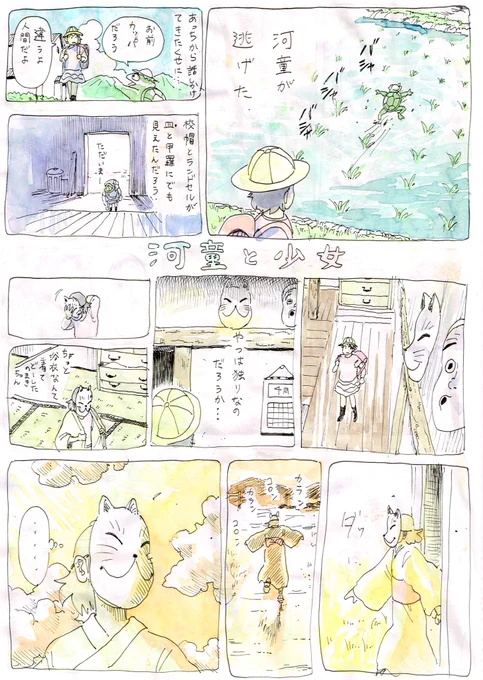 河童が
逃げた
バシャ
バシャ
バシャ
あっちから話かけ
てきたくせに…
お前
カッパ
だろう
違うよ
人間だよ
校帽とランドセルが
皿と甲羅にでも
見えたんだろう。
ただいま
河童と少女
やつは独りなの
だろうか…
ちょっと
浴衣なんて
着て
どーした
のまき
ちゃん
ダッ
カラン
コロン
カラン
コロン
・・・・